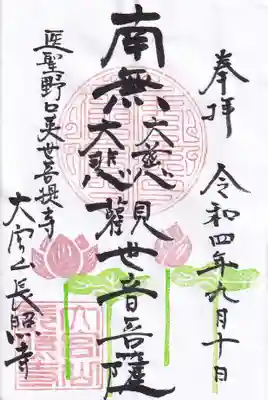 奉拝　令和四年九月十日
南無大慈大悲觀世音菩薩
医聖野口英世菩提寺
長照寺